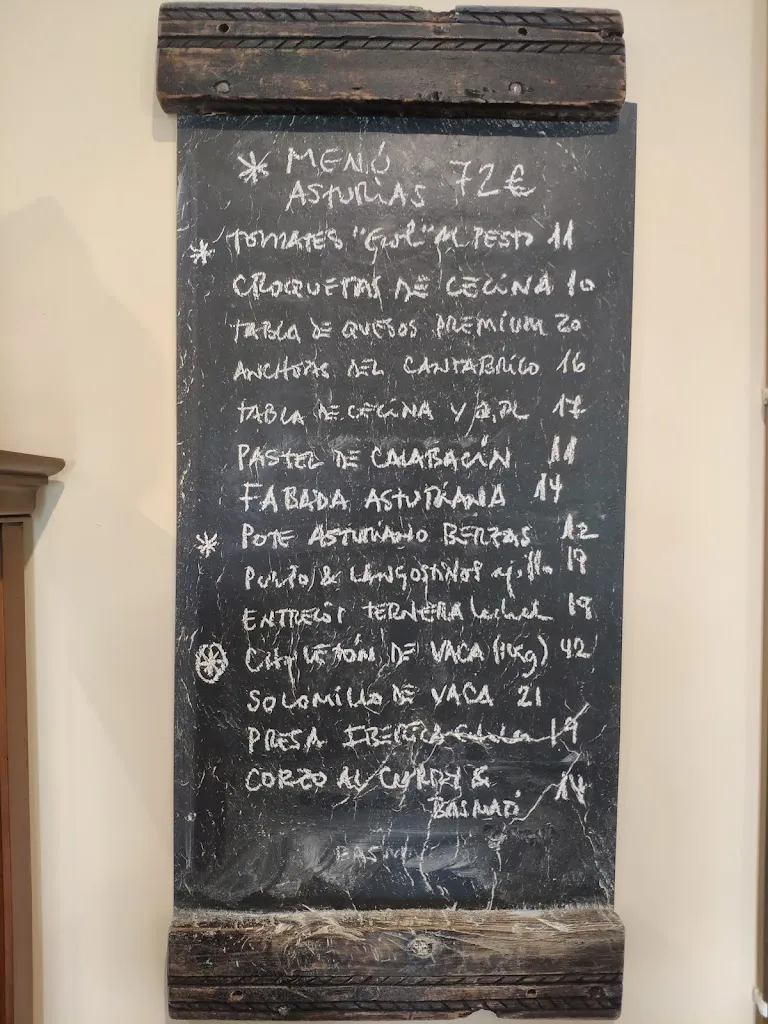 * MENÚ
ASTURIAS 72€
* TOMATES "Evol" AL PESTO 11
CROQUETAS DE CECINA 10
TABLA DE QUESOS PREMIUM 20
ANCHOAS DEL CANTABRICO 16
TABLA DE CECINA Y 17
PASTEL DE CALABACÍN 11
FABADA ASTURIANA 14
* POTE ASTURIANO BERZAS 12
& LANGOSTINOS 19
ENTRECOT TERNERA 19
* CHULETÓN DE VACA (1Kg) 42
SOLOMILLO DE VACA 21
PRESA IBERICA 19
CORZO AL CURRY & 14
BASMATI